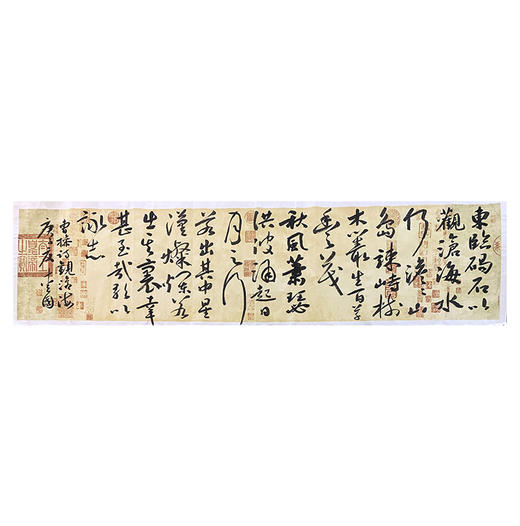 東臨碣石以
觀滄海水
何澹々山
島竦峙樹
木叢生百草
豐茂
秋風蕭瑟
洪波涌起日
月之行
若出其中星
漢燦爛若
出其裏幸
甚至哉歌以
詠志
曹操詩觀滄海
庚子夏